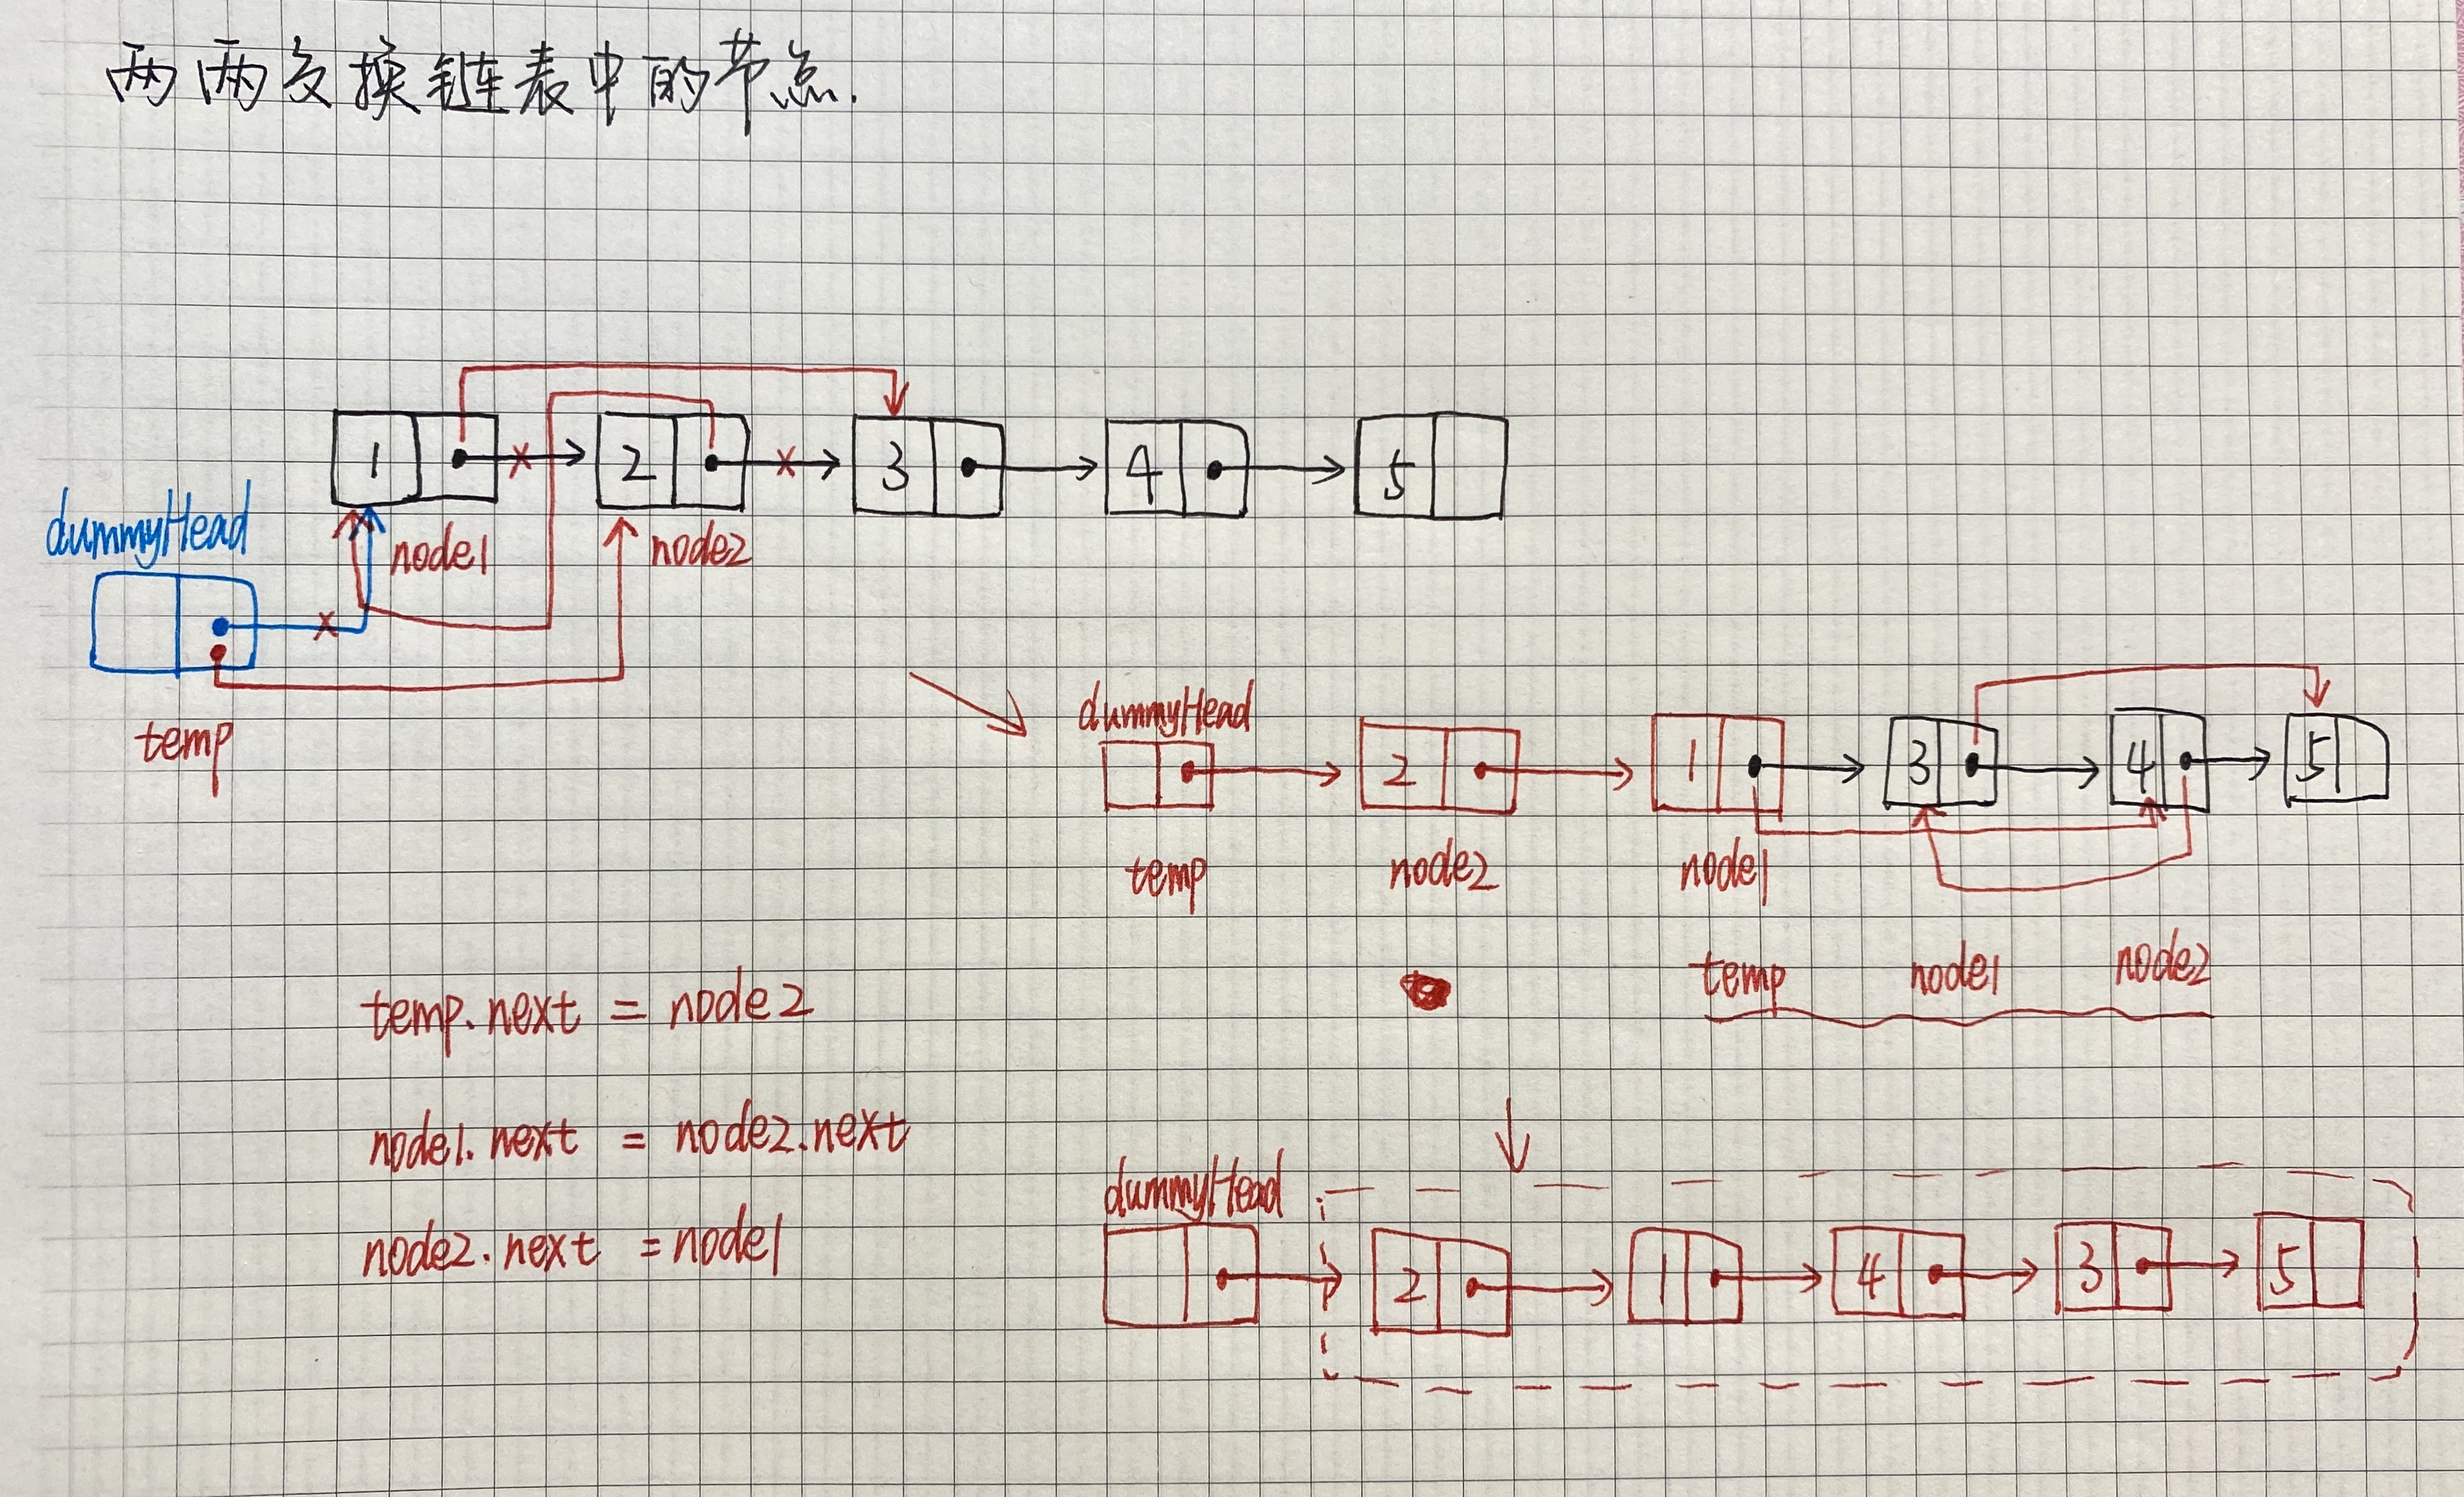 两两交换链表中的节点.
1 2 3 4 5
dummyHead
node1 node2
temp
dummyHead
2 1 3 4 5
temp node2 node1
temp node1 node2
temp.next = node2
node1.next = node2.next
node2.next = node1
dummyHead
2 1 4 3 5